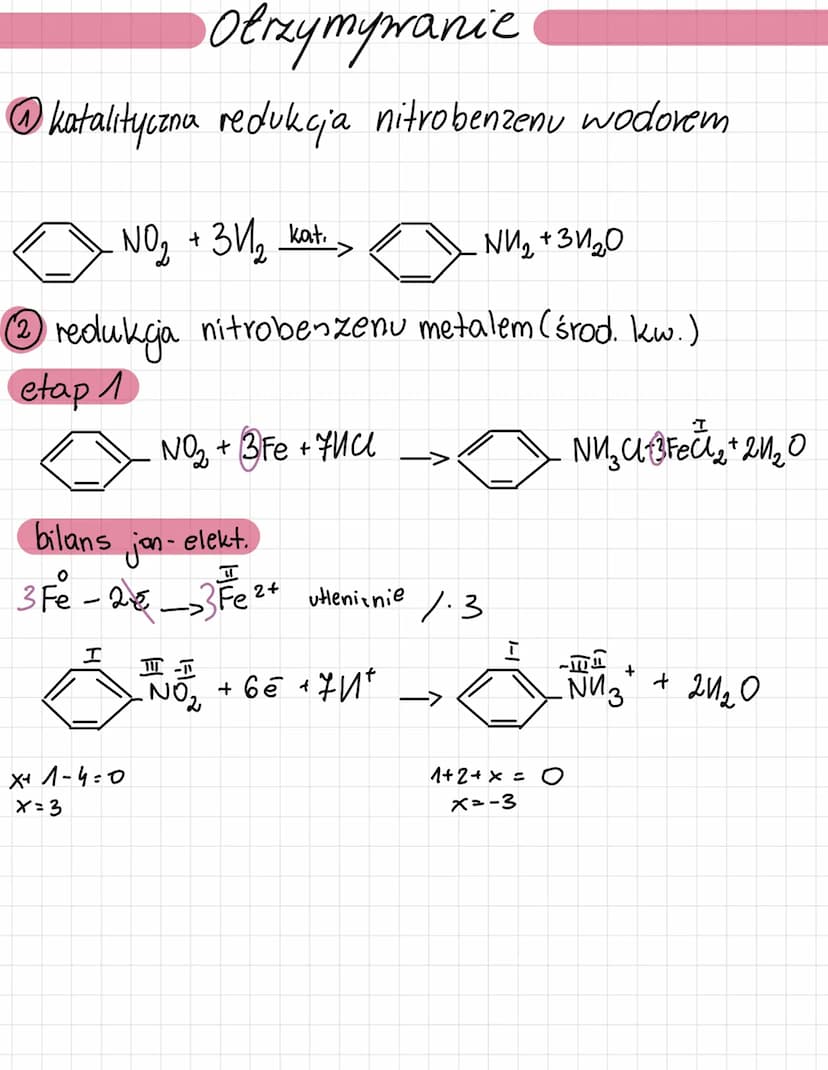 Otrzymywanie
① katalityczna redukcja nitrobenzenu wodorem
NO₂ + 3H₂ kat. → NH₂ + 3H₂O
② redukcja nitrobenzenu metalem (środ. kw.)
etap 1
NO₂ + 3Fe + 7HCl → NH₃Cl + 3FeCl₂ + 2H₂O
-I
bilans jon-elekt.
0 II
3Fe – 2e → 3Fe²⁺ utlenienie /·3
I III -II I -III II
NO₂ + 6e + 7H⁺ → NH₃⁺ + 2H₂O
x+ 1-4=0 1+2+x = 0
x=3 x=-3